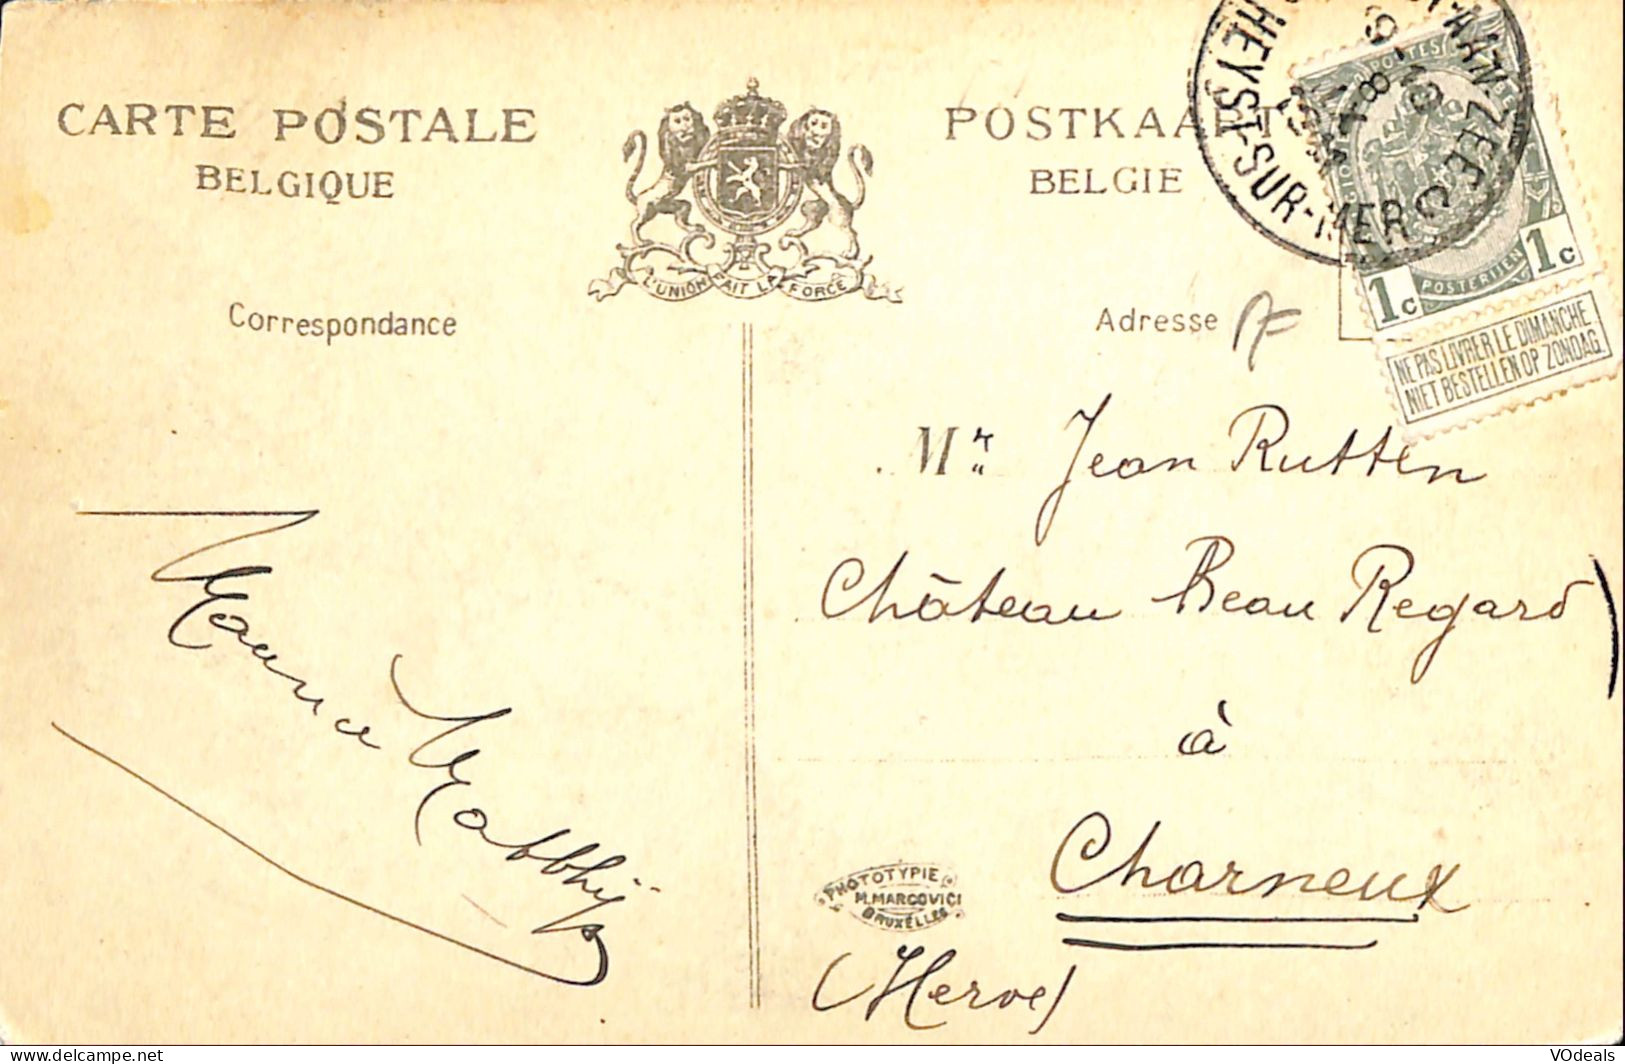 CARTE POSTALE
BELGIQUE
L'UNION FAIT LA FORCE
POSTKAART
BELGIE
HEYST-SUR-MER
AAN-ZEE
POSTES
POSTERIJEN
1c 1c
NE PAS LIVRER LE DIMANCHE
NIET BESTELLEN OP ZONDAG
Correspondance
Adresse
Mr Jean Rutten
Château Beau Regard
à
Charneux
(Herve)
Maurice Matthijs
PHOTOTYPIE
M. MARCOVICI
BRUXELLES
www.delcampe.net
VOdeals